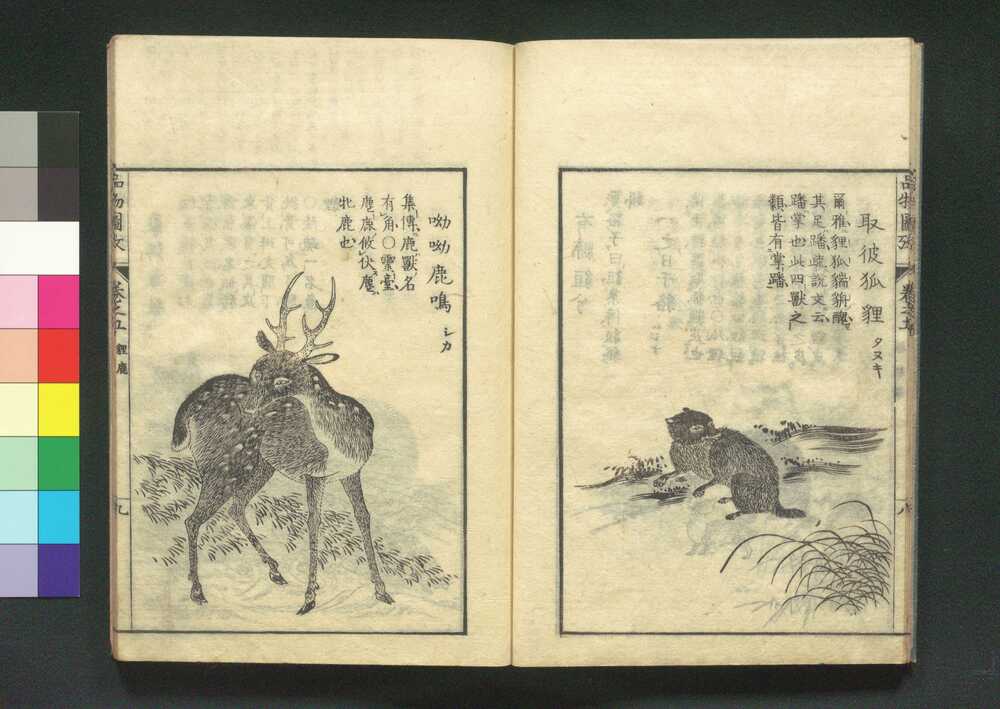 取彼狐貍 タヌキ
爾雅貍狐貒貈醜
其足蹯疏說文云
蹯掌也此四獸之
類皆有掌蹯
品物圖攷
卷之五
八
呦呦鹿鳴 シカ
集傳鹿獸名
有角〇靈臺
麀鹿攸伏麀
牝鹿也
品物圖攷
卷之五
貍鹿
九